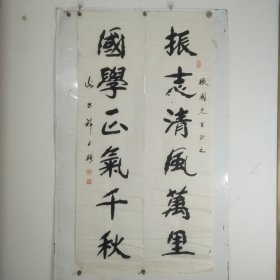 振志清風萬里
振國先生正之
國學正氣千秋